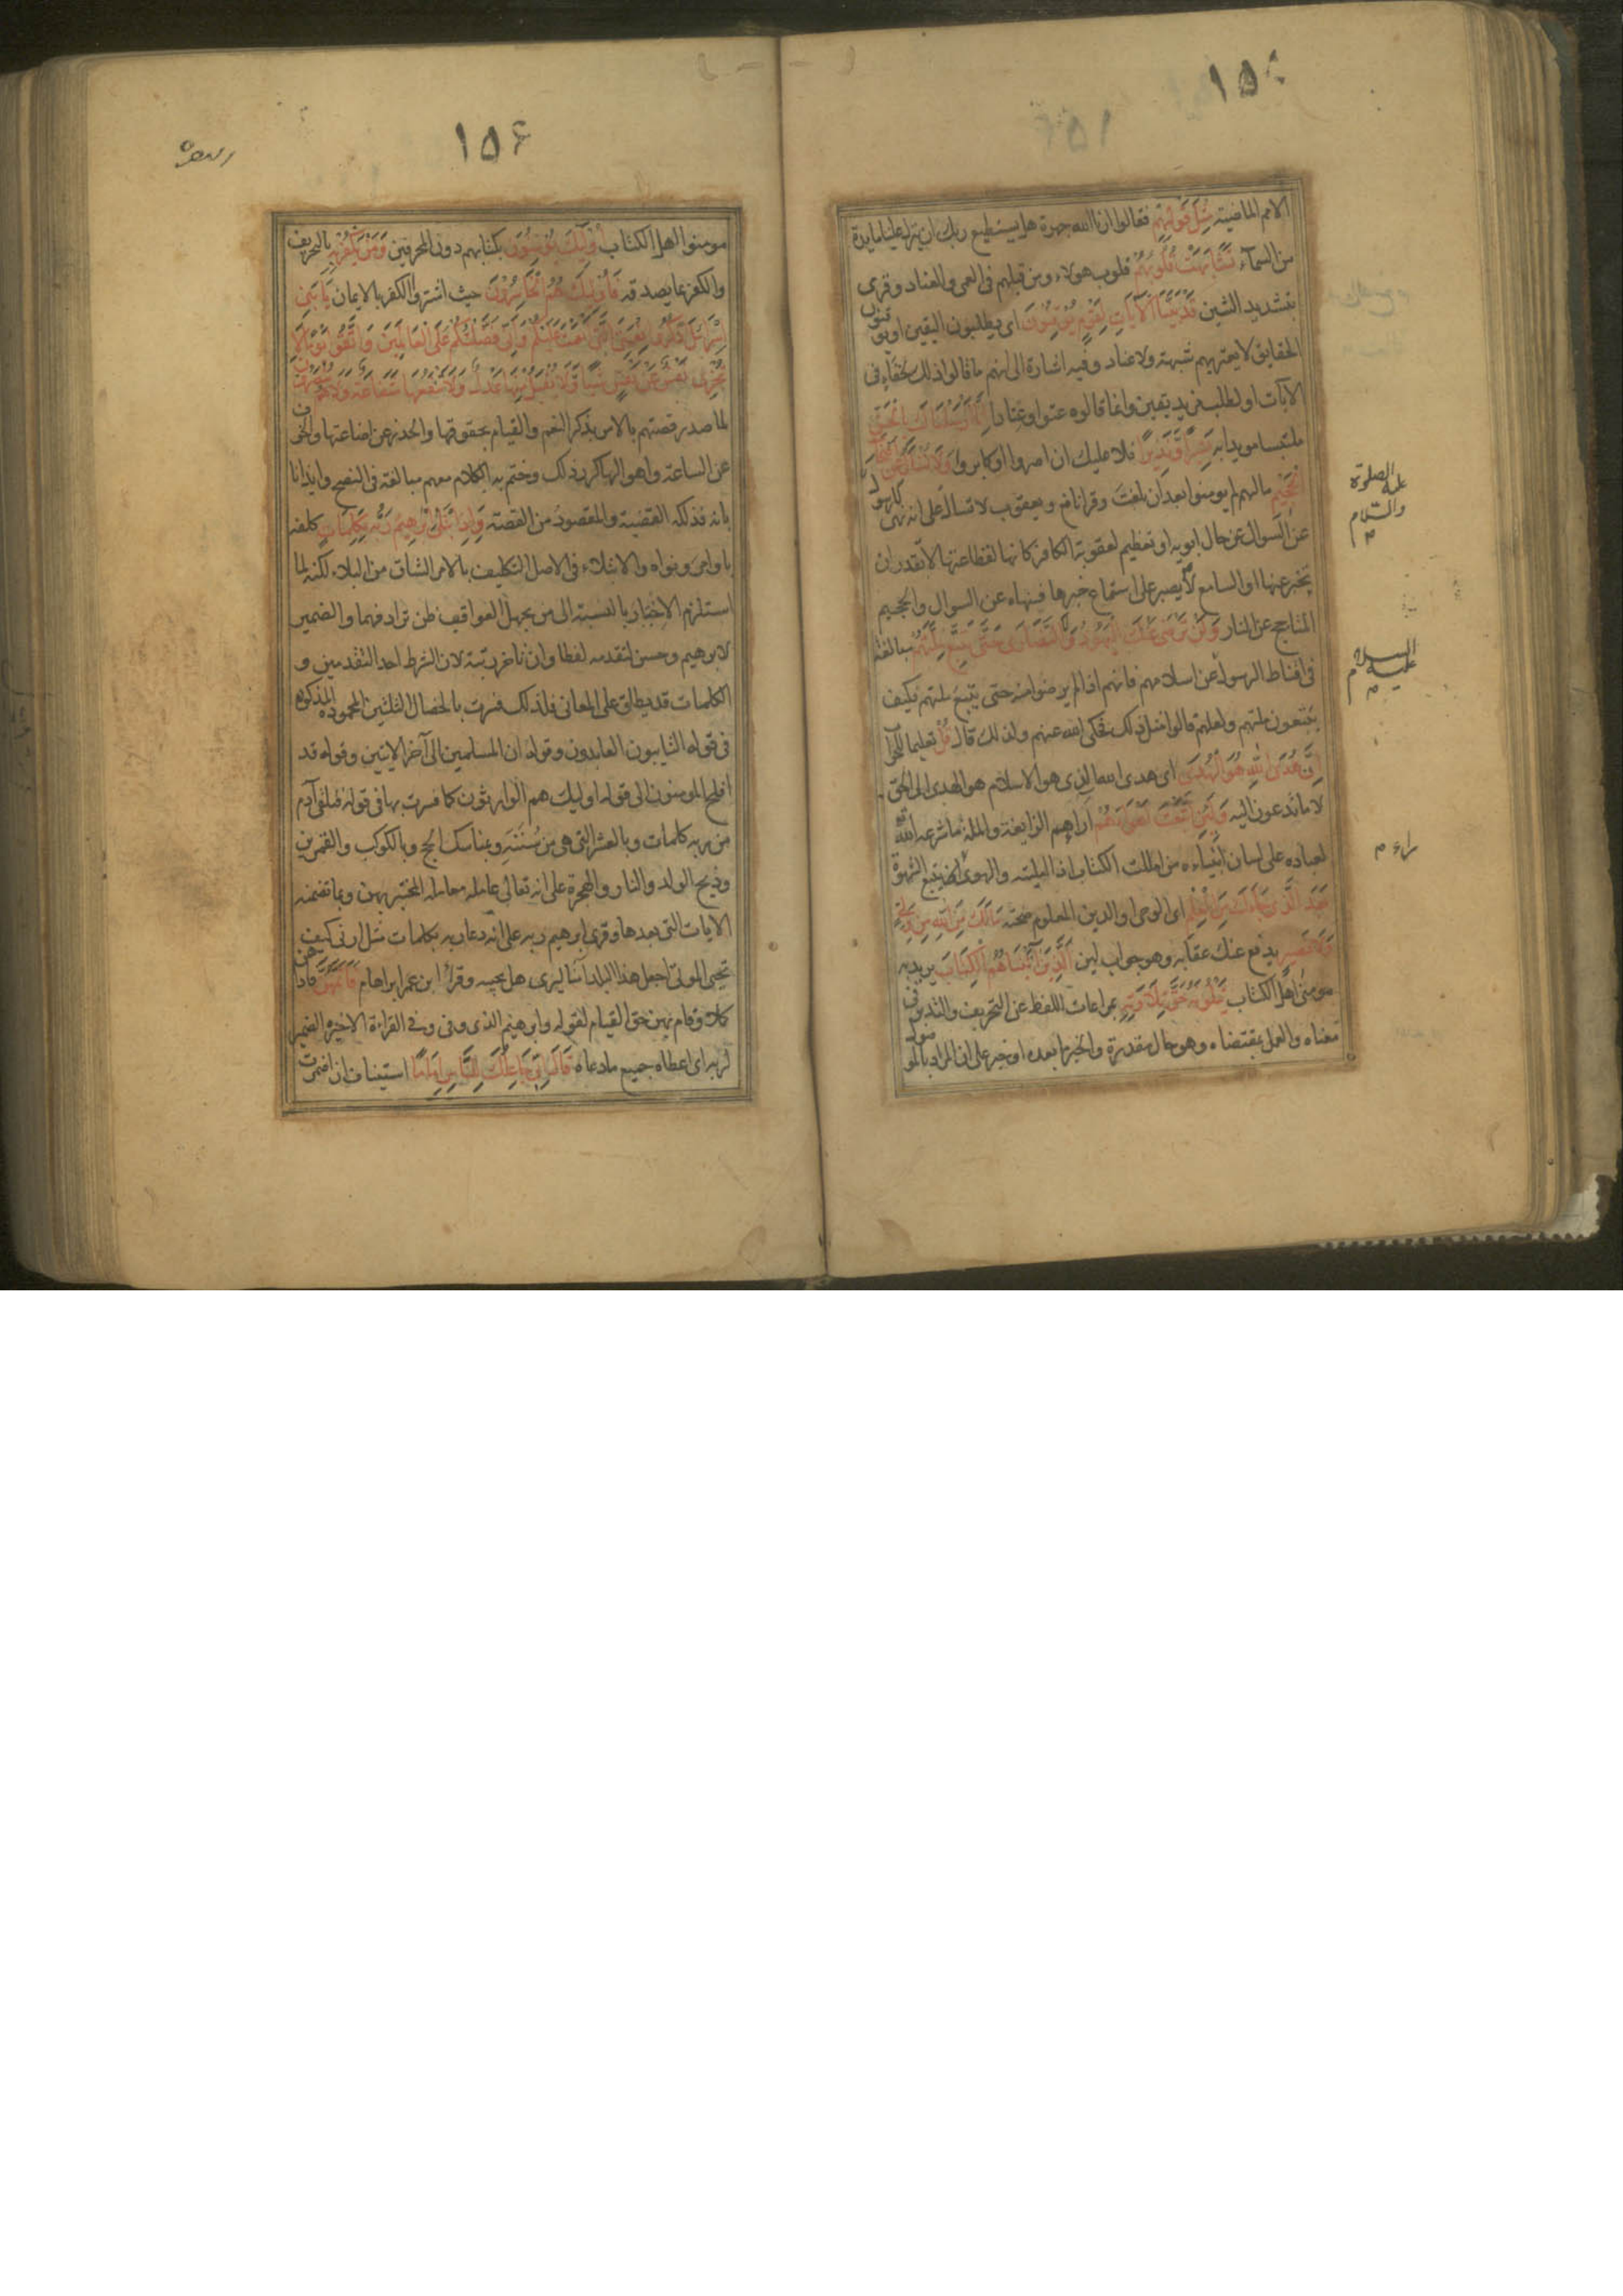 ١٥
الامم الماضية مثل قولهم فقالوا ارنا الله جهرة هل يستطيع ربك ان ينزل علينا مايدة
من السمآء تشابهت قلوبهم قلوب هولاء ومن قبلهم فى العمى والعناد وقرى
بتشديد الشين قد بينا الآيات لقوم يوقنون اى يطلبون اليقين او يوقنون
الحقايق لا يعتريهم شبهة ولا عناد وفيه اشارة الى انهم ما قالوا ذلك لخفاء فى
الآيات او لطلب مزيد يقين وانما قالوه عتوا وعنادا انا ارسلناك بالحق
ملتبسا مويدا به بشيرا ونذيرا فلا عليك ان اصروا او كابروا ولا تسئل عن اصحاب
الجحيم ما لهم لم يومنوا بعد ان بلغت وقرا نافع ويعقوب لا تسال على انه نهى للرسول
عن السوال عن حال ابويه او تعظيم لعقوبة الكافر كانها لفظاعتها لا يقدر ان
يخبر عنها او السامع لا يصبر على استماع خبرها فينهاه عن السوال والجحيم
المتاجج عن النار ولن ترضى عنك اليهود ولا النصارى حتى تتبع ملتهم مبالغة
فى اقناط الرسول عن اسلامهم فانهم اذا لم يرضوا منه حتى يتبع ملتهم فكيف
يتبعون ملتهم ولعلهم قالوا مثل ذلك فحكى الله عنهم ولذلك قال قل تعليما للجواب
ان هدى الله هو الهدى اى هدى الله الذى هو الاسلام هو الهدى الى الحق
لا ما تدعون اليه ولئن اتبعت اهواءهم آراءهم الزايغة والملة ما شرعه الله
لعباده على لسان انبياءه من امللت الكتاب اذا امليته والهوى يتبع الشهوة
بعد الذى جاءك من العلم اى الوحى او الدين المعلوم صحته مالك من الله من ولى
ولا نصير يدفع عنك عقابه وهو جواب لين الذين آتيناهم الكتاب يريد به
مومنى اهل الكتاب يتلونه حق تلاوته بمراعات اللفظ عن التحريف والتدبر فى
معناه والعمل بمقتضاه وهو حال مقدرة والخبر ما بعده او خبر على ان المراد بالموصول
عليه الصلوة
والسلام
م
عليه السلام
م
راء م
١٥۶
مومنوا اهل الكتاب اوليك يومنون بكتابهم دون المحرفين ومن يكفر به بالتحريف
والكفر بما يصدقه فاوليك هم الخاسرون حيث اشتروا الكفر بالايمان يا بنى
اسرائل اذكروا نعمتى التى انعمت عليكم وانى فضلتكم على العالمين واتقوا يوما لا
تجزى نفس عن نفس شيئا ولا يقبل منها عدل ولا تنفعها شفاعة ولا هم ينصرون
لما صدر قصتهم بالامر بذكر النعم والقيام بحقوقها والحذر عن اضاعتها والخوف
عن الساعة واهوالها كرر ذلك وختم به الكلام معهم مبالغة فى النصح وايذانا
بانه فذلكه القضية والمقصود من القصة واذ ابتلى ابرهيم ربه بكلمات كلفه
باوامر ونواه والابتلاء فى الاصل التكليف بالامر الشاق من البلاء لكنه لما
استلزم الاختبار بالنسبة الى من يجهل العواقب ظن ترادفهما والضمير
لابرهيم وحسن لتقدمه لفظا وان تاخر رتبة لان الشرط احد التقدمين و
الكلمات قد يطلق على المعانى فلذلك فسرت بالخصال الثلثين المحموده المذكورة
فى قوله التايبون العابدون وقوله ان المسلمين الى آخر الايتين وقوله قد
افلح المومنون الى قوله اوليك هم الوارثون كما فسرت بها فى قوله فتلقى آدم
من ربه كلمات وبالعشر التى هى من سننه وبمناسك الحج وبالكوكب والقمرين
وذبح الولد والنار والهجرة على انه تعالى عامله معاملة المختبر بهن وبما تضمنه
الايات التى بعدها وقرى ابرهيم ربه على انه دعا ربه بكلمات مثل ارنى كيف
تحيى الموتى اجعل هذا البلد آمنا ليرى هل يجيبه وقرأ ابن عمر ابراهام فاتمهن فاداهن
كملا وقام بهن حق القيام لقوله وابرهيم الذى وفى وفى القراءة الاخيرة الضمير
لربه اى اعطاه جميع ما دعاه قال انى جاعلك للناس اماما استيناف ان اضمرت